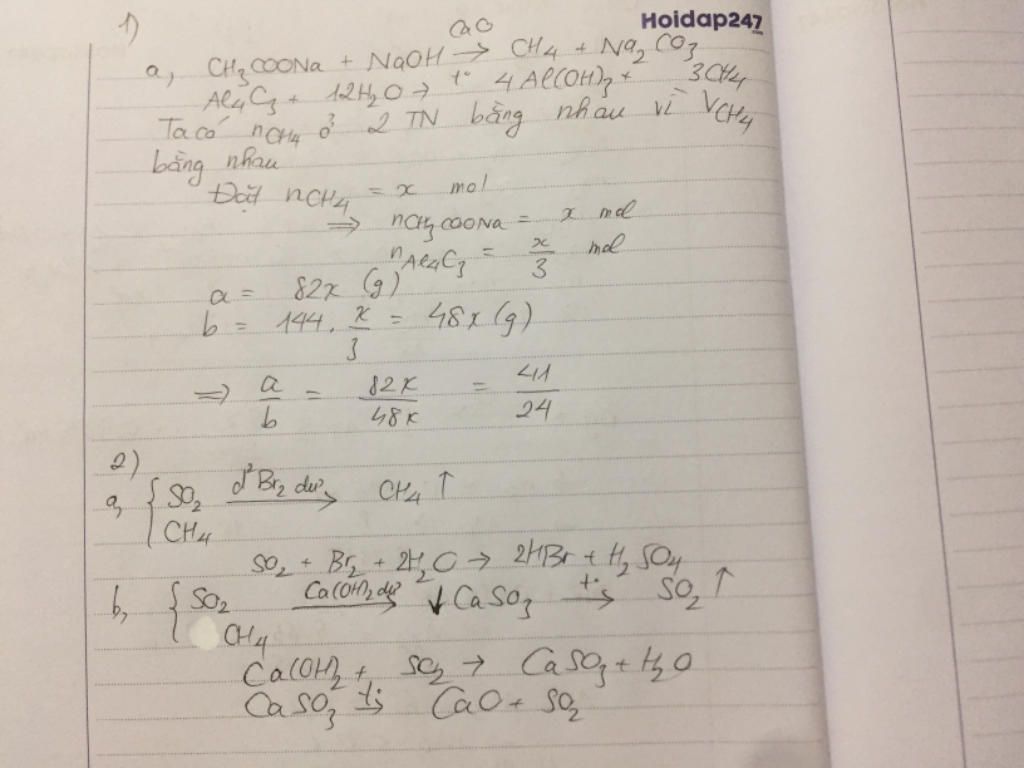 Hoidap247
1)
a, CH₃COONa + NaOH CaO→t° CH₄ + Na₂CO₃
Al₄C₃ + 12H₂O → 4Al(OH)₃ + 3CH₄
Ta có nCH₄ ở 2 TN bằng nhau vì VCH₄
bằng nhau
Đặt nCH₄ = x mol
=> nCH₃COONa = x mol
nAl₄C₃ = x/3 mol
a = 82x (g)
b = 144 . x/3 = 48x (g)
=> a/b = 82x/48x = 41/24
2)
a, { SO₂ d² Br₂ dư→ CH₄ ↑
CH₄
SO₂ + Br₂ + 2H₂O → 2HBr + H₂SO₄
b, { SO₂ Ca(OH)₂ dư→ ↓ CaSO₃ t°→ SO₂ ↑
CH₄
Ca(OH)₂ + SO₂ → CaSO₃ + H₂O
CaSO₃ t°→ CaO + SO₂